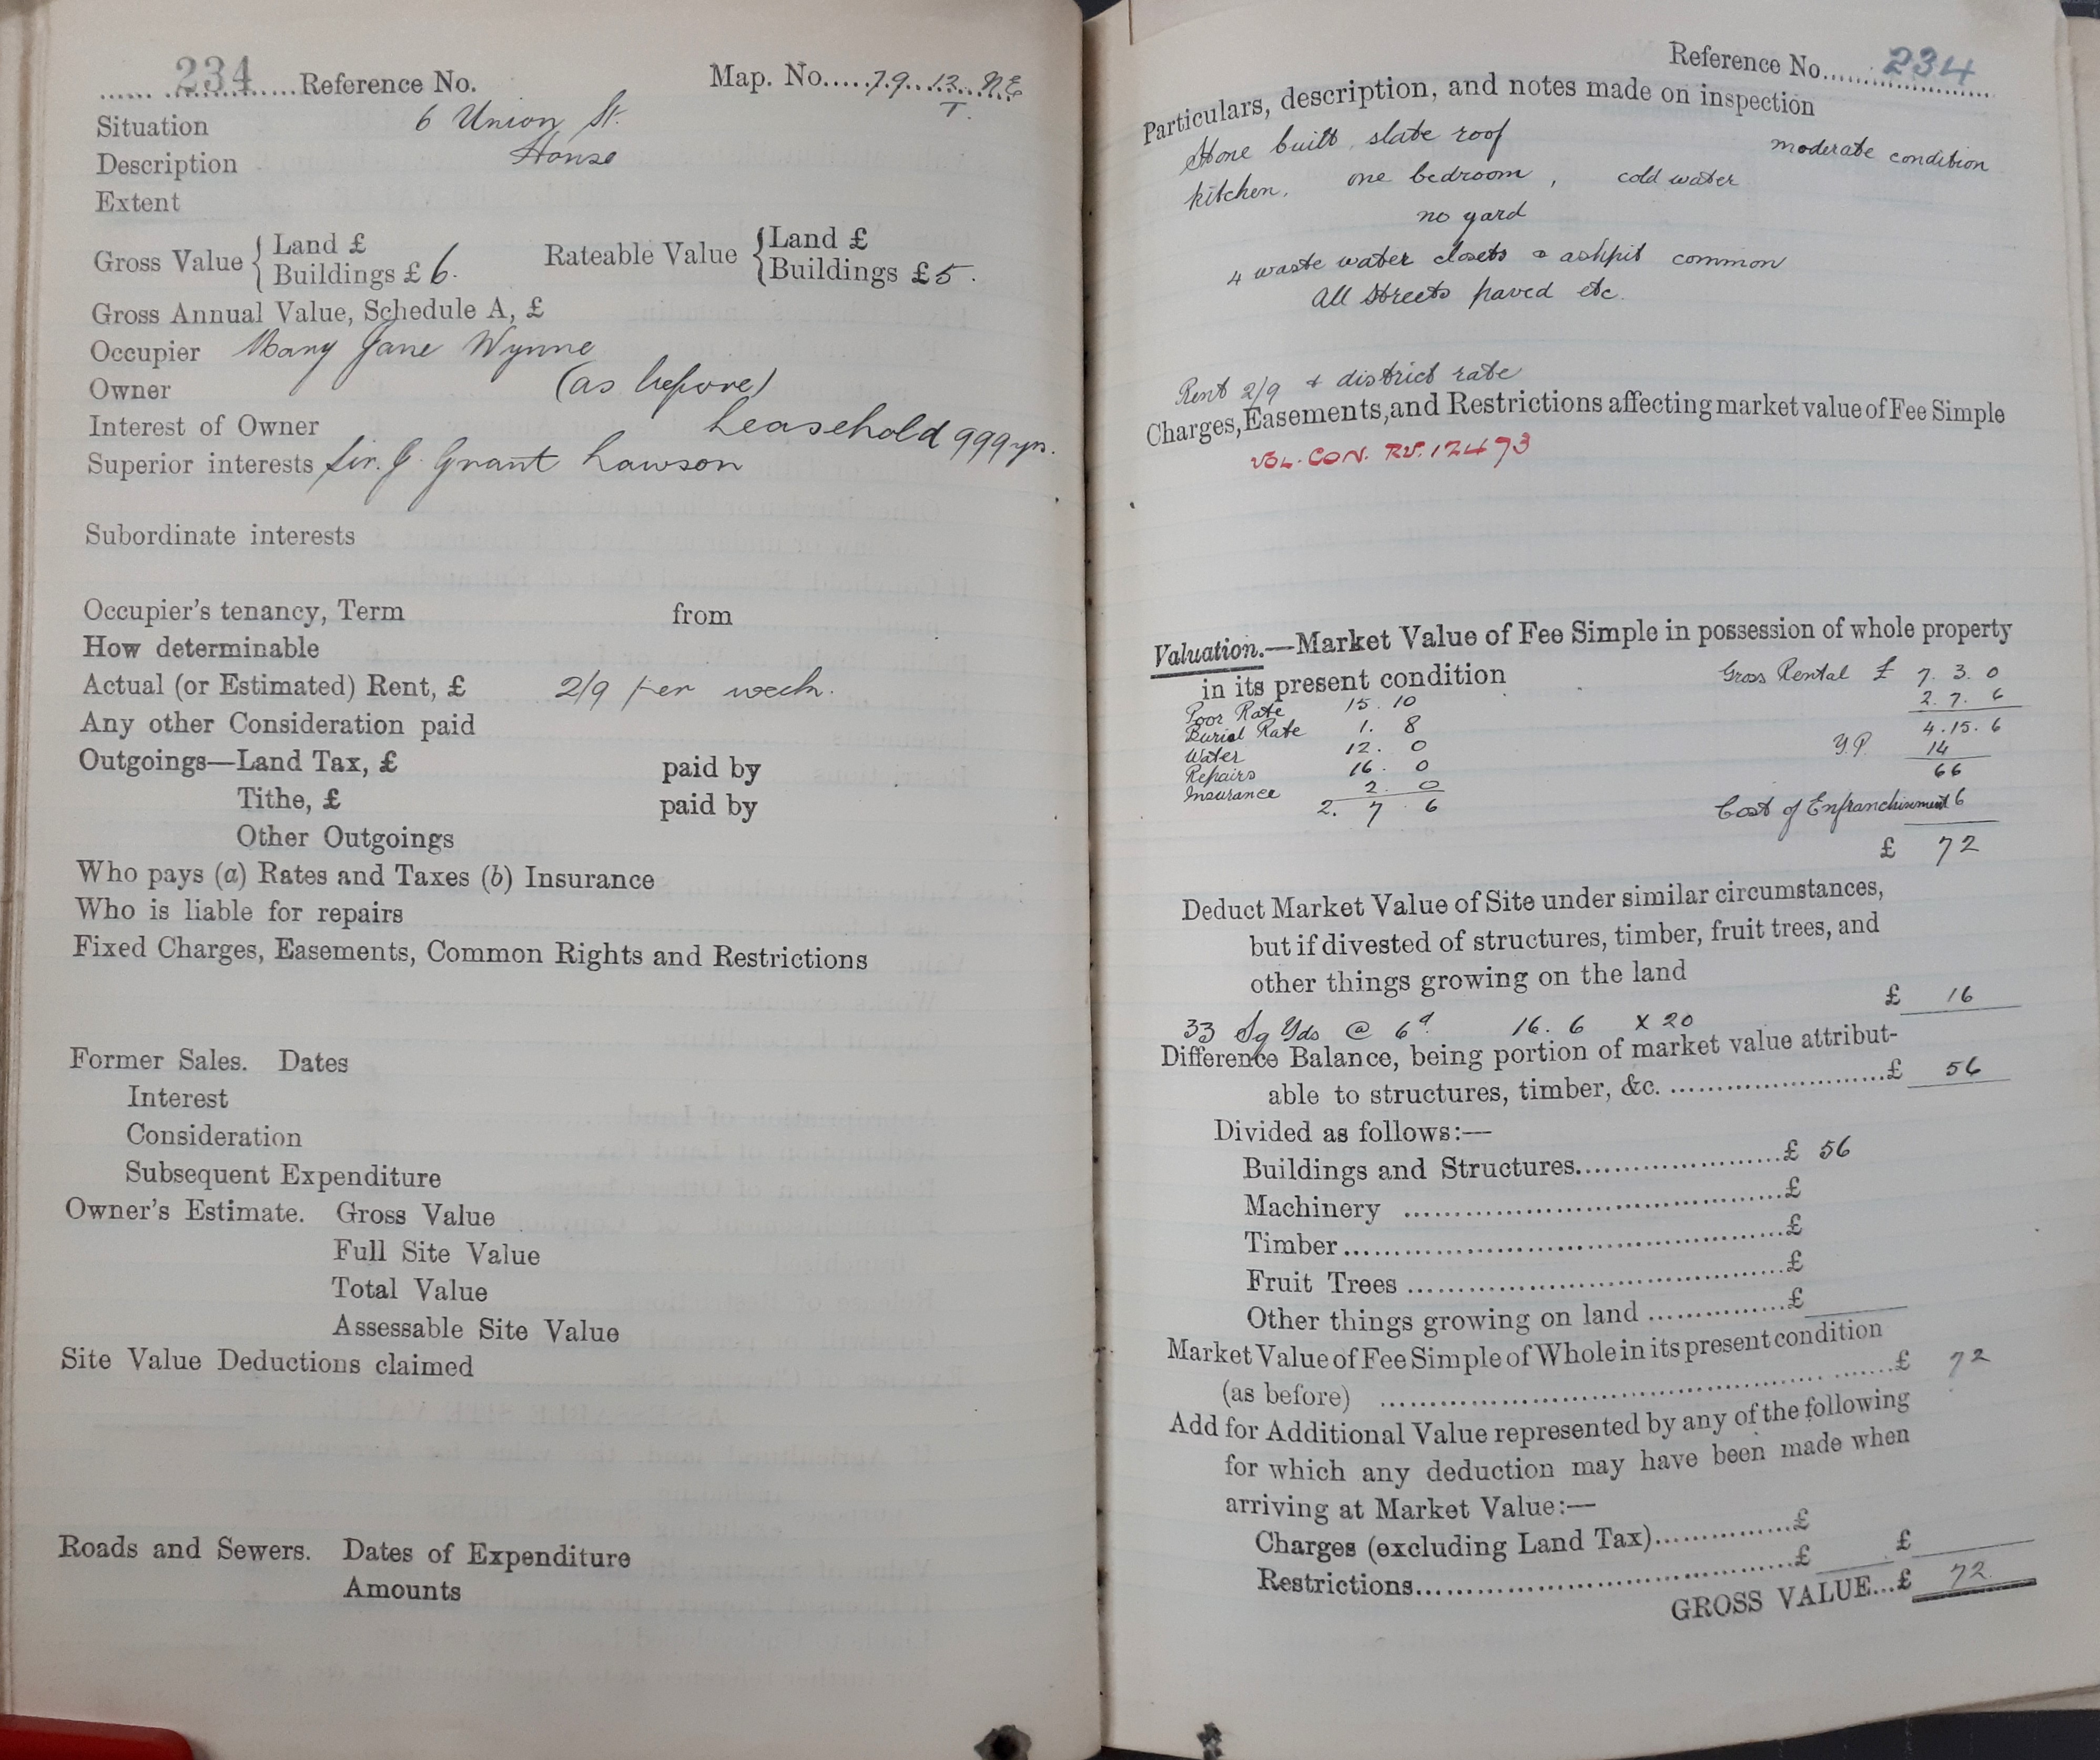 ...... 234 ......Reference No. Map. No.....79..13..N.E
T.
Situation 6 Union St.
Description House
Extent
Gross Value { Land £
Buildings £ 6. Rateable Value { Land £
Buildings £ 5.
Gross Annual Value, Schedule A, £
Occupier Mary Jane Wynne
Owner (as before)
Interest of Owner Leasehold 999 yrs.
Superior interests Sir. J. Grant Lawson
Subordinate interests
Occupier's tenancy, Term from
How determinable
Actual (or Estimated) Rent, £ 2/9 per week.
Any other Consideration paid
Outgoings—Land Tax, £ paid by
Tithe, £ paid by
Other Outgoings
Who pays (a) Rates and Taxes (b) Insurance
Who is liable for repairs
Fixed Charges, Easements, Common Rights and Restrictions
Former Sales. Dates
Interest
Consideration
Subsequent Expenditure
Owner's Estimate. Gross Value
Full Site Value
Total Value
Assessable Site Value
Site Value Deductions claimed
Roads and Sewers. Dates of Expenditure
Amounts
Reference No....... 234
Particulars, description, and notes made on inspection
Stone built, slate roof moderate condition
kitchen, one bedroom, cold water
no yard
4 waste water closets & ashpit common
All Streets paved etc.
Rent 2/9 + district rate
Charges, Easements, and Restrictions affecting market value of Fee Simple
VOL. CON. RV. 12473
Valuation.—Market Value of Fee Simple in possession of whole property
in its present condition Gross Rental £ 7. 3. 0
Poor Rate 15. 10 2. 7. 6
Burial Rate 1. 8 4. 15. 6
Water 12. 0 Y.P. 14
Repairs 16. 0 66
Insurance 2. 0 Cost of Enfranchisement 6
2. 7 6
£ 72
Deduct Market Value of Site under similar circumstances,
but if divested of structures, timber, fruit trees, and
other things growing on the land
£ 16
33 Sq Yds @ 6d 16. 6 x 20
Difference Balance, being portion of market value attribut-
able to structures, timber, &c. ........................£ 56
Divided as follows:—
Buildings and Structures......................£ 56
Machinery ........................................£
Timber..............................................£
Fruit Trees ........................................£
Other things growing on land ...............£
Market Value of Fee Simple of Whole in its present condition
(as before) ......................................................£ 72
Add for Additional Value represented by any of the following
for which any deduction may have been made when
arriving at Market Value:—
Charges (excluding Land Tax)...............£
Restrictions........................................£ £
GROSS VALUE...£ 72